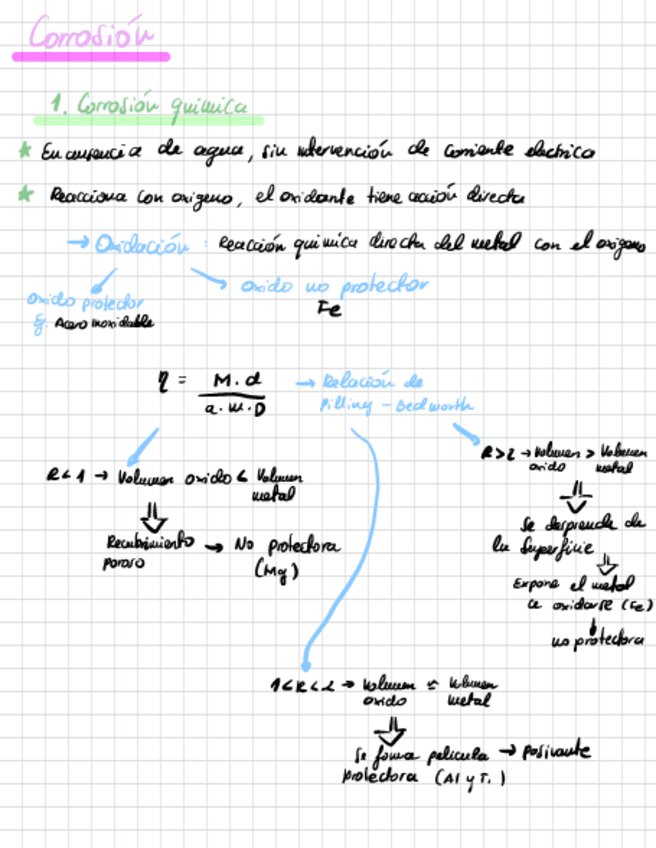 Corrosión
1. Corrosión química
★ En ausencia de agua, sin intervención de corriente electrica
★ Reacciona con oxigeno, el oxidante tiene acción directa
→ Oxidación : Reacción quimica directa del metal con el oxigeno
oxido protector
Ej. Acero inoxidable
oxido no protector
Fe
η = M.d / a.m.D → Relación de
Pilling - Bedworth
R < 1 → Volumen oxido < Volumen
metal
⇓
Recubrimiento → No protectora
poroso (Mg)
R > 2 → Volumen > Volumen
oxido metal
⇓
Se desprende de
la superficie
⇓
Expone el metal
a oxidarse (Fe)
↓
no protectora
1 < R < 2 → Volumen ≃ Volumen
oxido metal
⇓
Se foma pelicula → pasivante
protectora (Al y Ti)